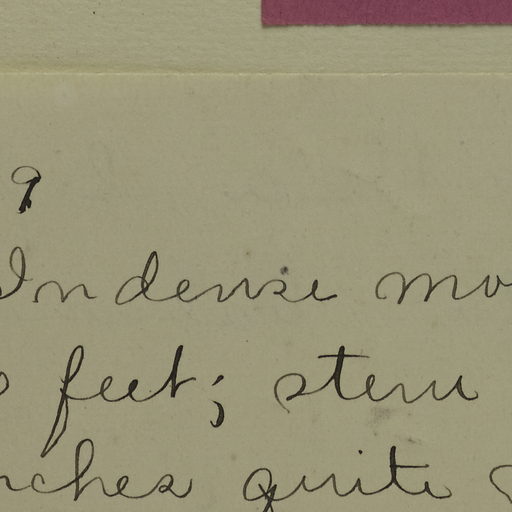 9
In dense mo
feet; stem
nches quite